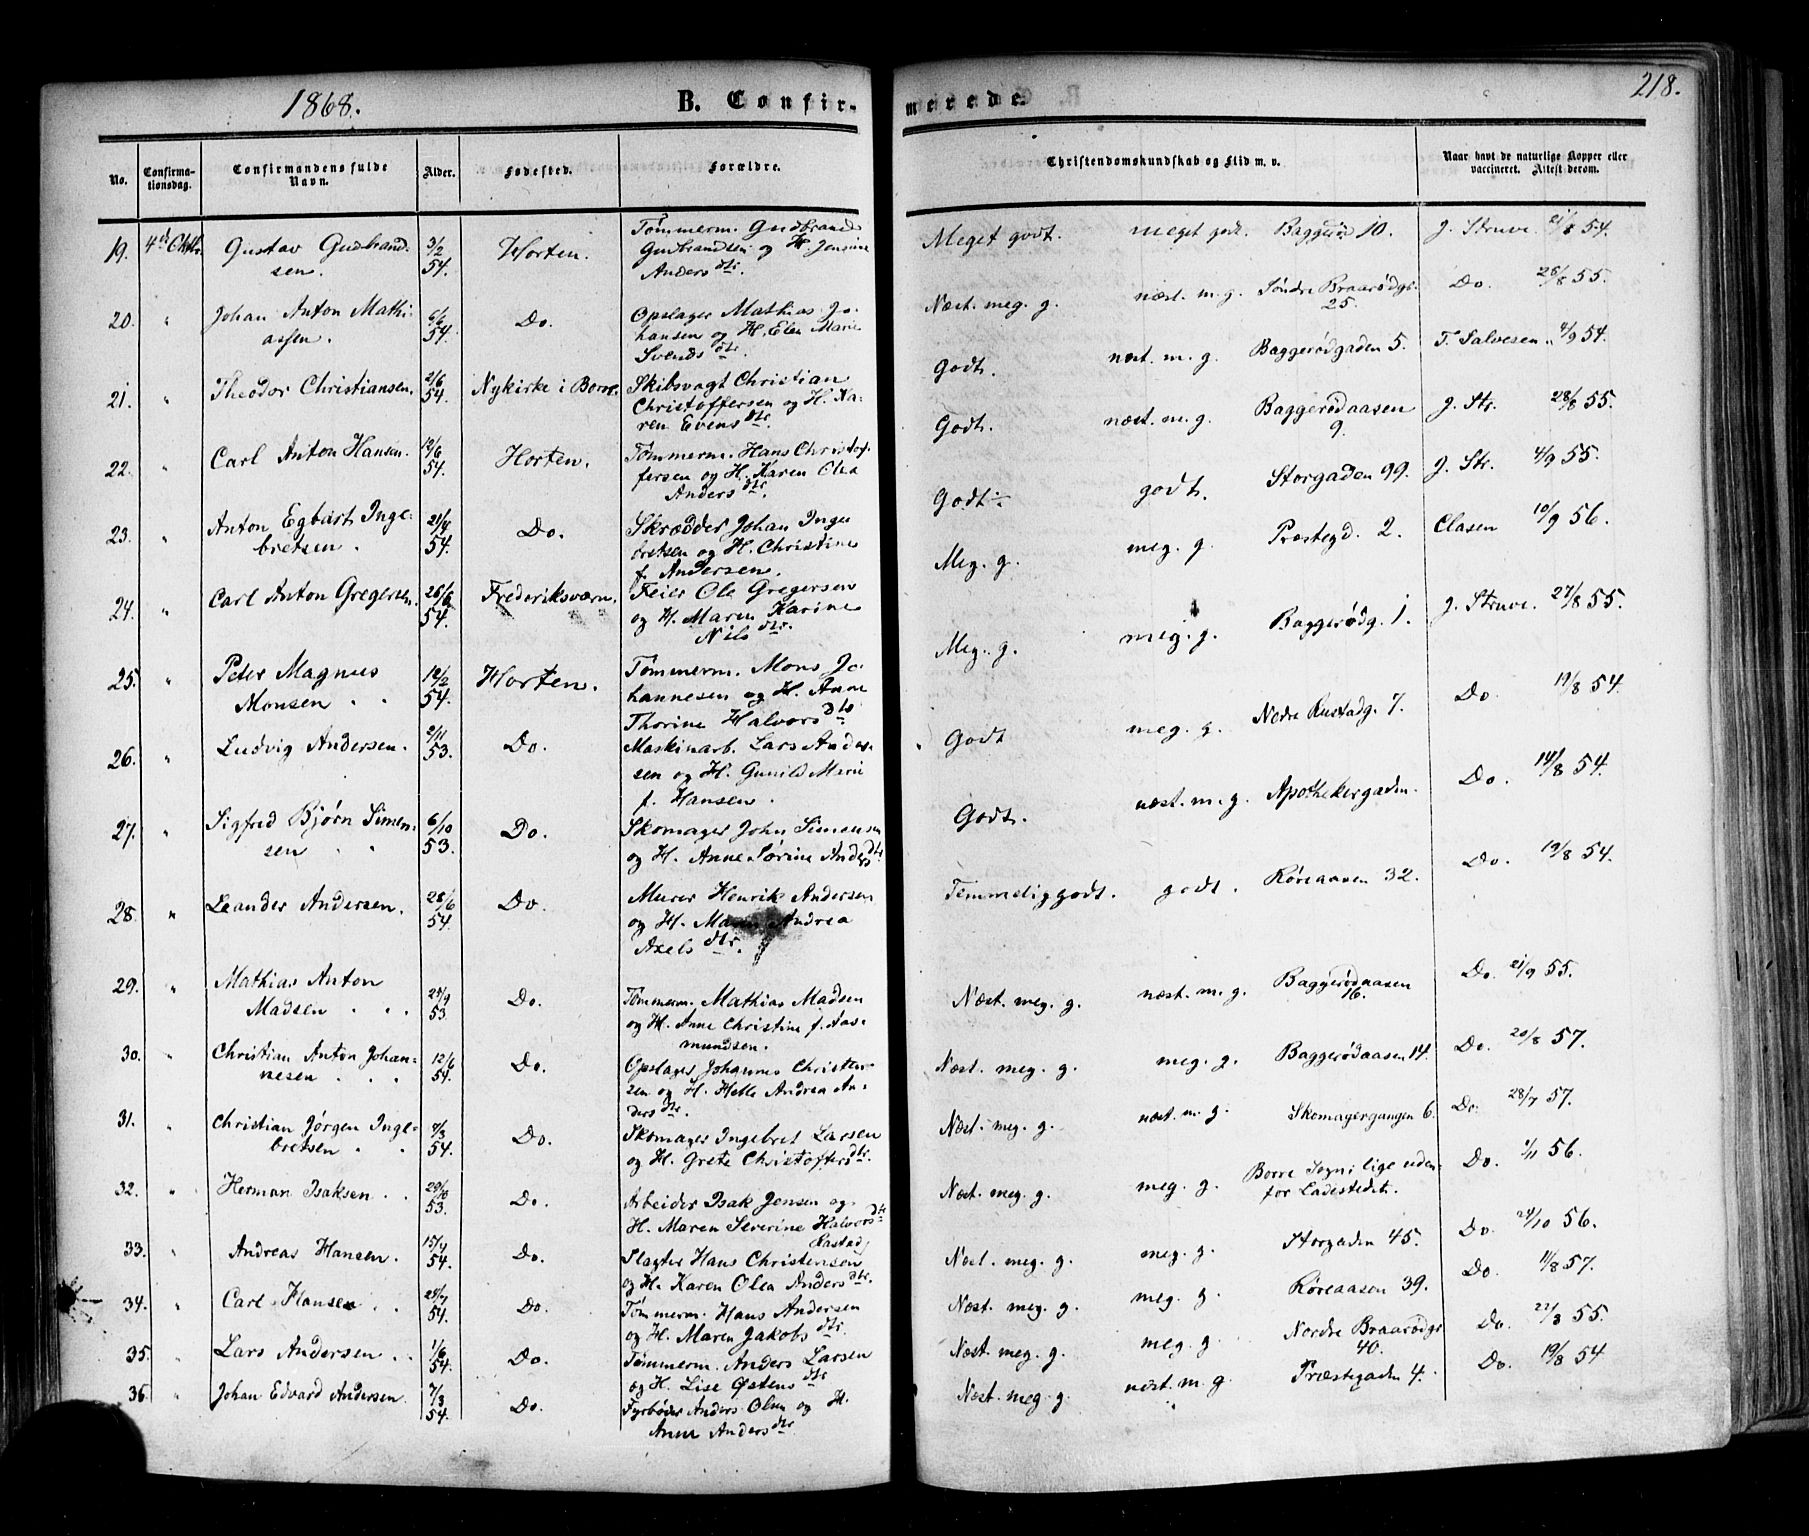 1868.
B. Confir-
merede.
218.
No.
Confirma-
tionsdag.
Confirmandens fulde
Navn.
Alder.
Fødested.
Forældre.
Christendomskundskab og Flid m. v.
Naar havt de naturlige Kopper eller
vaccineret. Attest derom.
19. 4de Oktbr. Gustav Gudbrand-
sen. 3/2 54. Horten. Tømmerm. Gudbrand
Gudbrandsen og H. Jensine
Anders dtr.
Meget godt. meget godt. Baggerød 10. J. Struve. 21/8 54.
20. " Johan Anton Mathi-
assen. 6/6 54. Do. Opslager Mathias Jo-
hansen og H. Elen Marie
Svends dtr.
Næst. meg. g. næst. m. g. Søndre Braarødg.
25. Do. 28/8 55.
21. " Theodor Christiansen. 2/6 54. Nykirke i Borre. Skibsvagt Christian
Christoffersen og H. Ka-
ren Evens dtr.
Godt. næst. m. g. Baggerødgaden 5. T. Salvesen " 4/9 54.
22. " Carl Anton Hansen. 12/6 54. Horten. Tømmerm. Hans Christof-
fersen og H. Karen Olea
Anders dtr.
Godt. næst. m. g. Baggerødaasen
9. J. Str. 28/8 55.
23. " Anton Egbart Inge-
bretsen. 21/4 54. Do. Skrædder Johan Inge
bretsen og H. Christine
f. Andersen.
Godt. godt. Storgaden 99. J. Str. 4/9 55.
24. " Carl Anton Gregersen. 26/6 54. Frederiksværn. Feier Ole Gregersen
og H. Maren Karine
Nils dtr.
Meg. g. meg. g. Præstegd. 2. Clasen 10/9 56.
25. " Peter Magnus
Monsen " " 12/2 54. Horten. Tømmerm. Mons Jo-
hannesen og H. Anne
Thorine Halvors dtr
Meg. g. meg. g. Baggerødg. 1. J. Struve. 27/8 55.
26. " Ludvig Andersen. 2/11 53. Do. Maskinarb. Lars Ander-
sen og H. Gunild Marie
f. Hansen.
Godt meg. g. Nedre Rustadg. 7. Do 19/8 54.
27. " Sigfred Bjørn Simen-
sen " " 6/10 53. Do. Skomager John Simensen
og H. Anne Sørine Anders dtr
Godt. næst. m. g. Apothekergaden. Do. 14/8 54.
28. " Leander Andersen. 28/6 54. Do. Murer Henrik Andersen
og H. Maren Andrea
Axels dtr.
Temmelig godt. godt. Røreaasen 32. Do. 19/8 54.
29. " Mathias Anton
Madsen " " 24/9 53. Do. Tømmerm. Mathias Madsen
og H. Anne Christine f. Aas-
mundsen.
Næst. meg. g. næst. m. g. Baggerødaasen
16. Do. 21/9 55.
30. " Christian Anton Johan-
nesen " " 12/6 54. Do. Opslager Johannes Christen-
sen og H. Helle Andrea An-
ders dtr.
Næst. meg. g. meg. g. Baggerødaasen 14. Do. 20/8 57.
31. " Christian Jørgen Inge-
bretsen " " 9/3 54. Do. Skomager Ingebret Larsen
og H. Grete Christofers dtr.
Næst. meg. g. næst. m. g. Skomagergangen 6. Do. 28/7 57.
32. " Herman Isaksen. " 29/10 53. Do. Arbeider Isak Jensen og
H. Maren Severine Halvors dtr
Rastad
Næst. meg. g. meg. g. Borre Sogn; lige uden-
for Ladestedet. Do. 1/11 56.
33. " Andreas Hansen. 15/4 54. Do. Slagter Hans Christensen
og H. Karen Olea Anders dtr.
Næst. meg. g. meg. g. Storgaden 45. Do. 24/10 56.
34. " Carl Hansen. " 28/7 54. Do. Tømmerm. Hans Andersen
og H. Maren Jakobs dtr.
Næst. meg. g. meg. g. Røreaasen 39. Do. 11/8 57.
35. " Lars Andersen " " 1/6 54. Do. Tømmerm. Anders Larsen
og H. Lise Østens dtr
Næst. meg. g. meg. g Nordre Braarødgs
40. Do. 22/3 55.
36. " Johan Edvard Andersen. 7/3 54. Do. Fyrbøder Anders Olsen og H.
Anne Anders dtr.
Næst. meg. g. næst. m. g Præstegaden 4. Do. 19/8 54